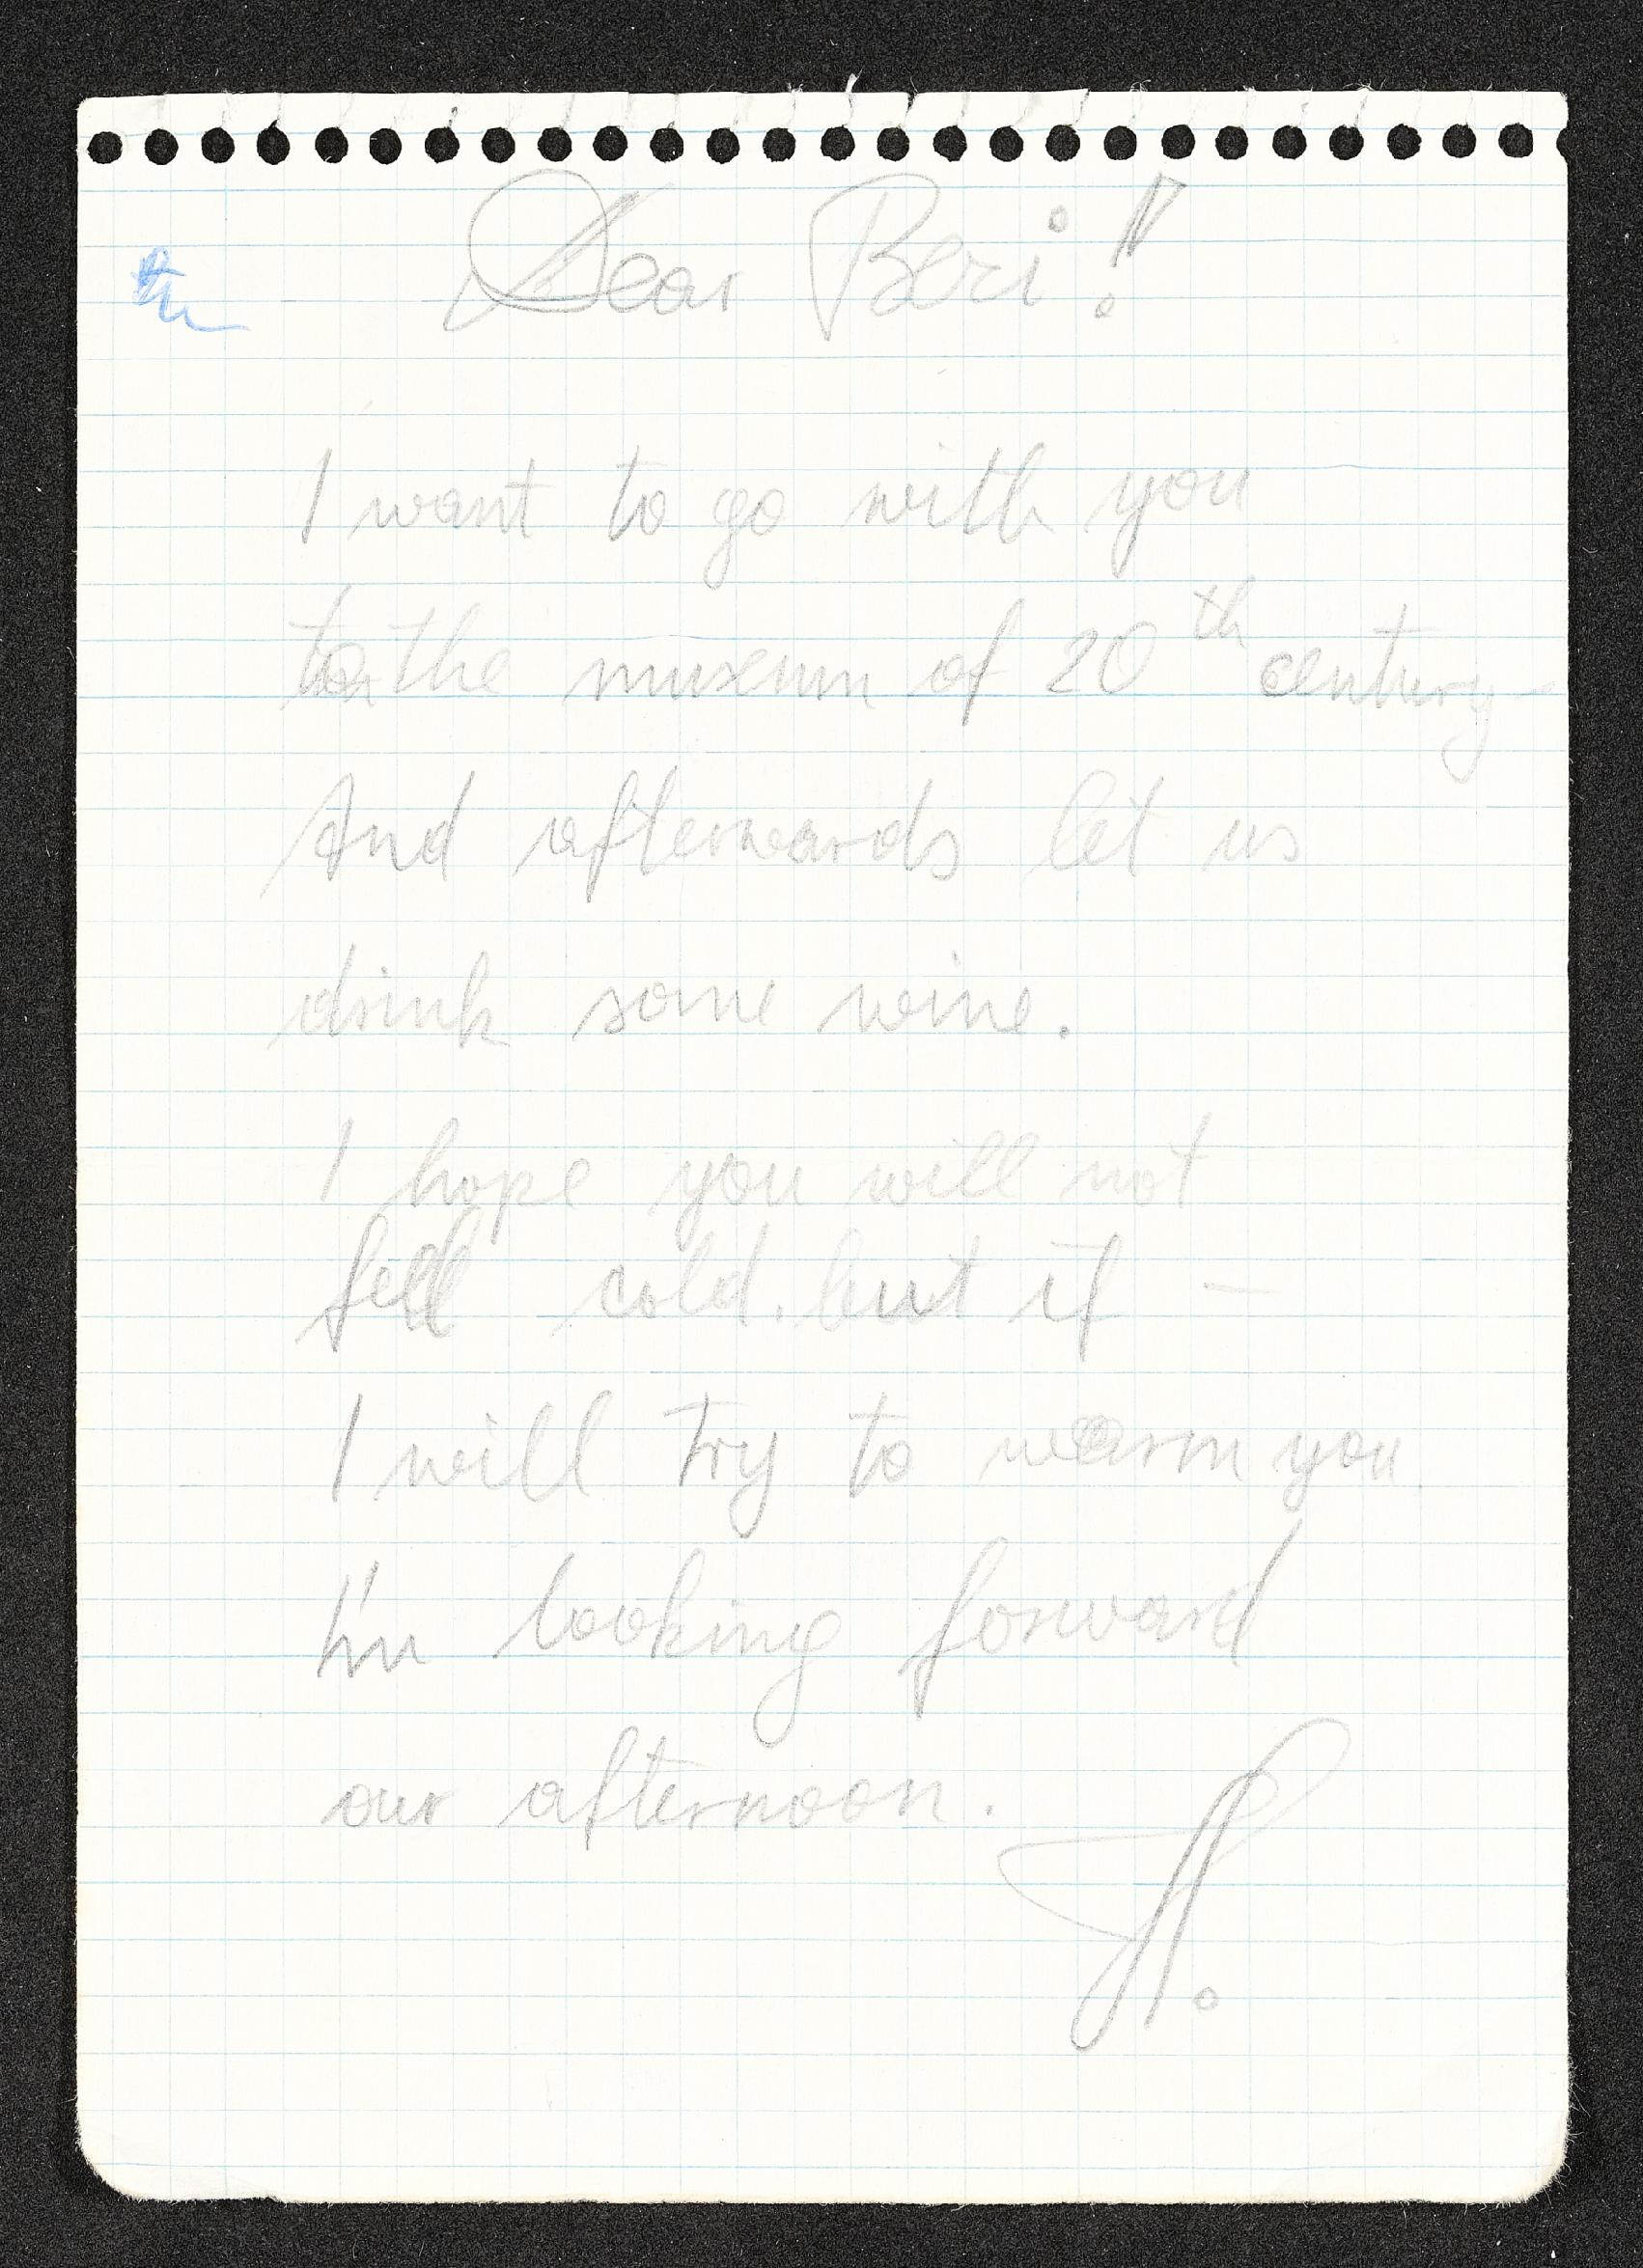 Dear Beri!
I want to go with you
to the museum of 20th century -
And afterwards let us
drink some wine.
I hope you will not
fell cold. but if -
I will try to warm you.
I'm looking forward
our afternoon.